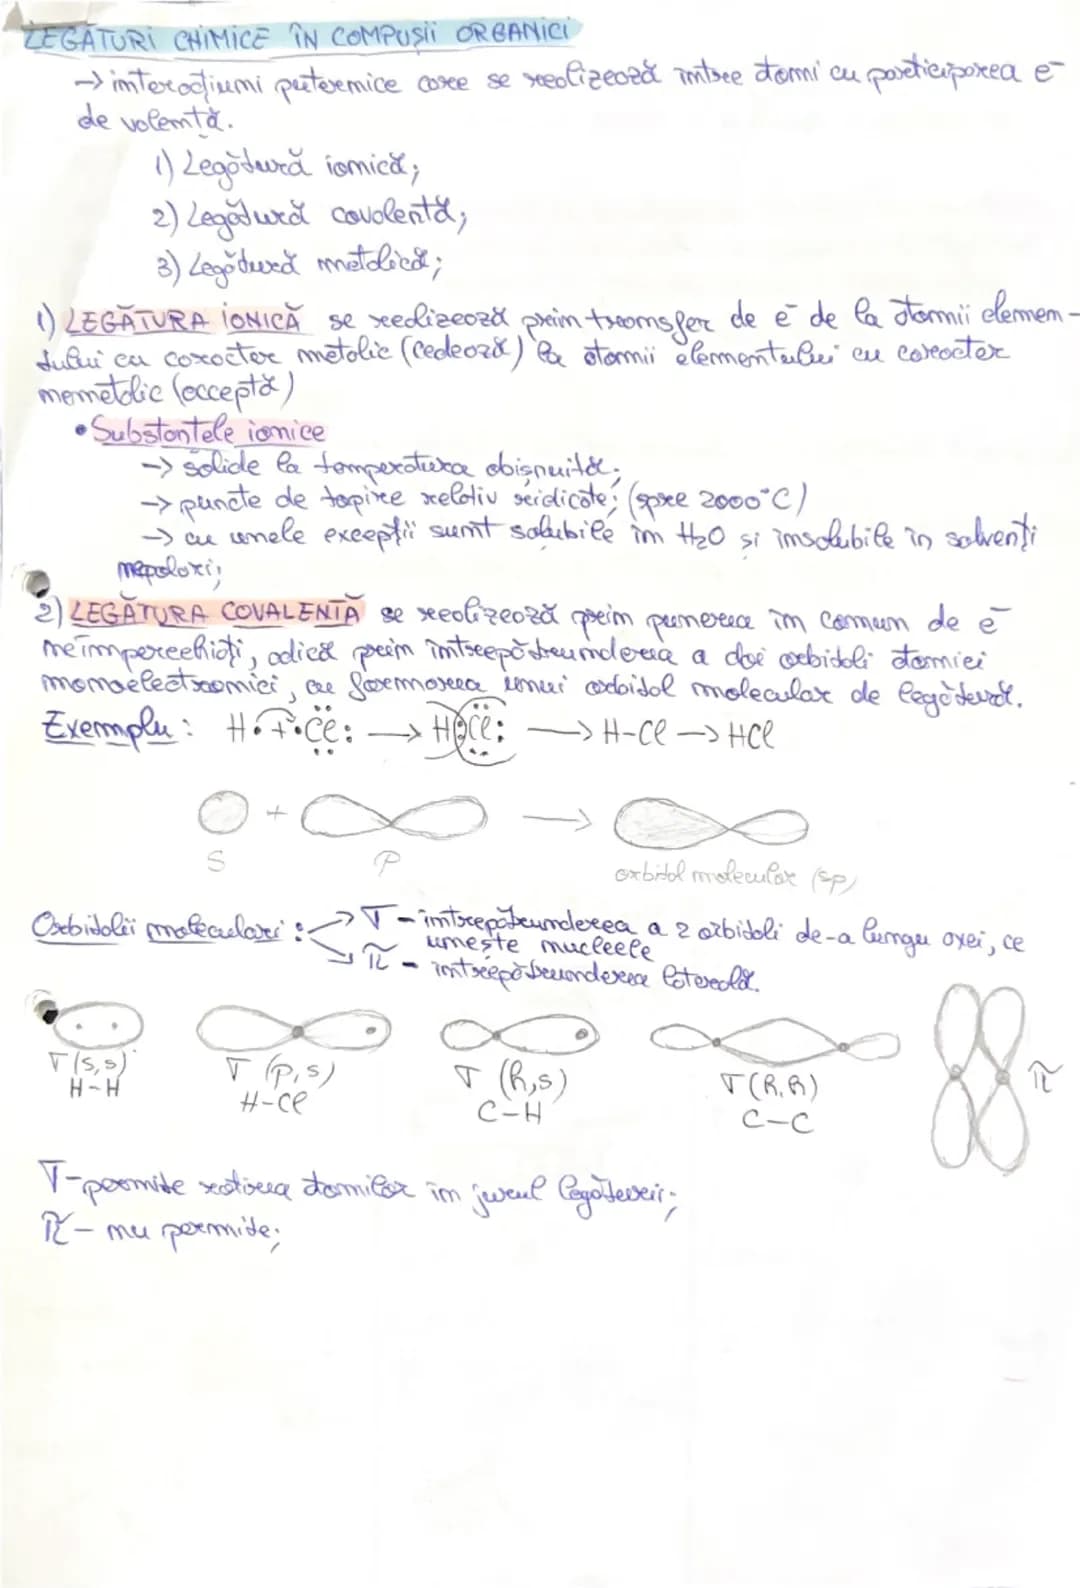 LEGĂTURI CHIMICE ÎN COMPUȘII ORGANICI
→ interacțiuni puternice care se realizează între atomi cu participarea e⁻
de valență.
1) Legătură ionică;
2) Legătură covalentă;
3) Legătură metalică;
1) LEGĂTURA IONICĂ se realizează prin transfer de e⁻ de la atomii elemen-
tului cu caracter metalic (cedează) la atomii elementului cu caracter
nemetalic (acceptă)
• Substanțele ionice
→ solide la temperatura obișnuită;
→ puncte de topire relativ ridicate; (spre 2000°C)
→ cu unele excepții sunt solubile în H₂O și insolubile în solvenți
nepolari;
2) LEGĂTURA COVALENTĂ se realizează prin punerea în comun de e⁻
neîmperecheați, adică prin întrepătrunderea a doi orbitali atomici
monoelectronici, cu formarea unui orbital molecular de legătură.
Exemplu: H• + •Cl: → H:Cl: → H-Cl → HCl
S + P → orbital molecular (sp)
Orbitalii moleculari: → σ - întrepătrunderea a 2 orbitali de-a lungu axei, ce
unește nucleele
→ π - întrepătrunderea laterală.
σ (s,s) σ (p,s) σ (h,s) σ (h,h) π
H-H H-Cl C-H C-C
σ - permite rotirea atomilor în jurul legăturii;
π - nu permite;